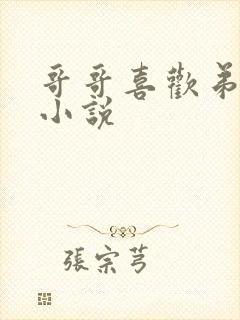 哥哥喜歡弟
小說
張宗芎